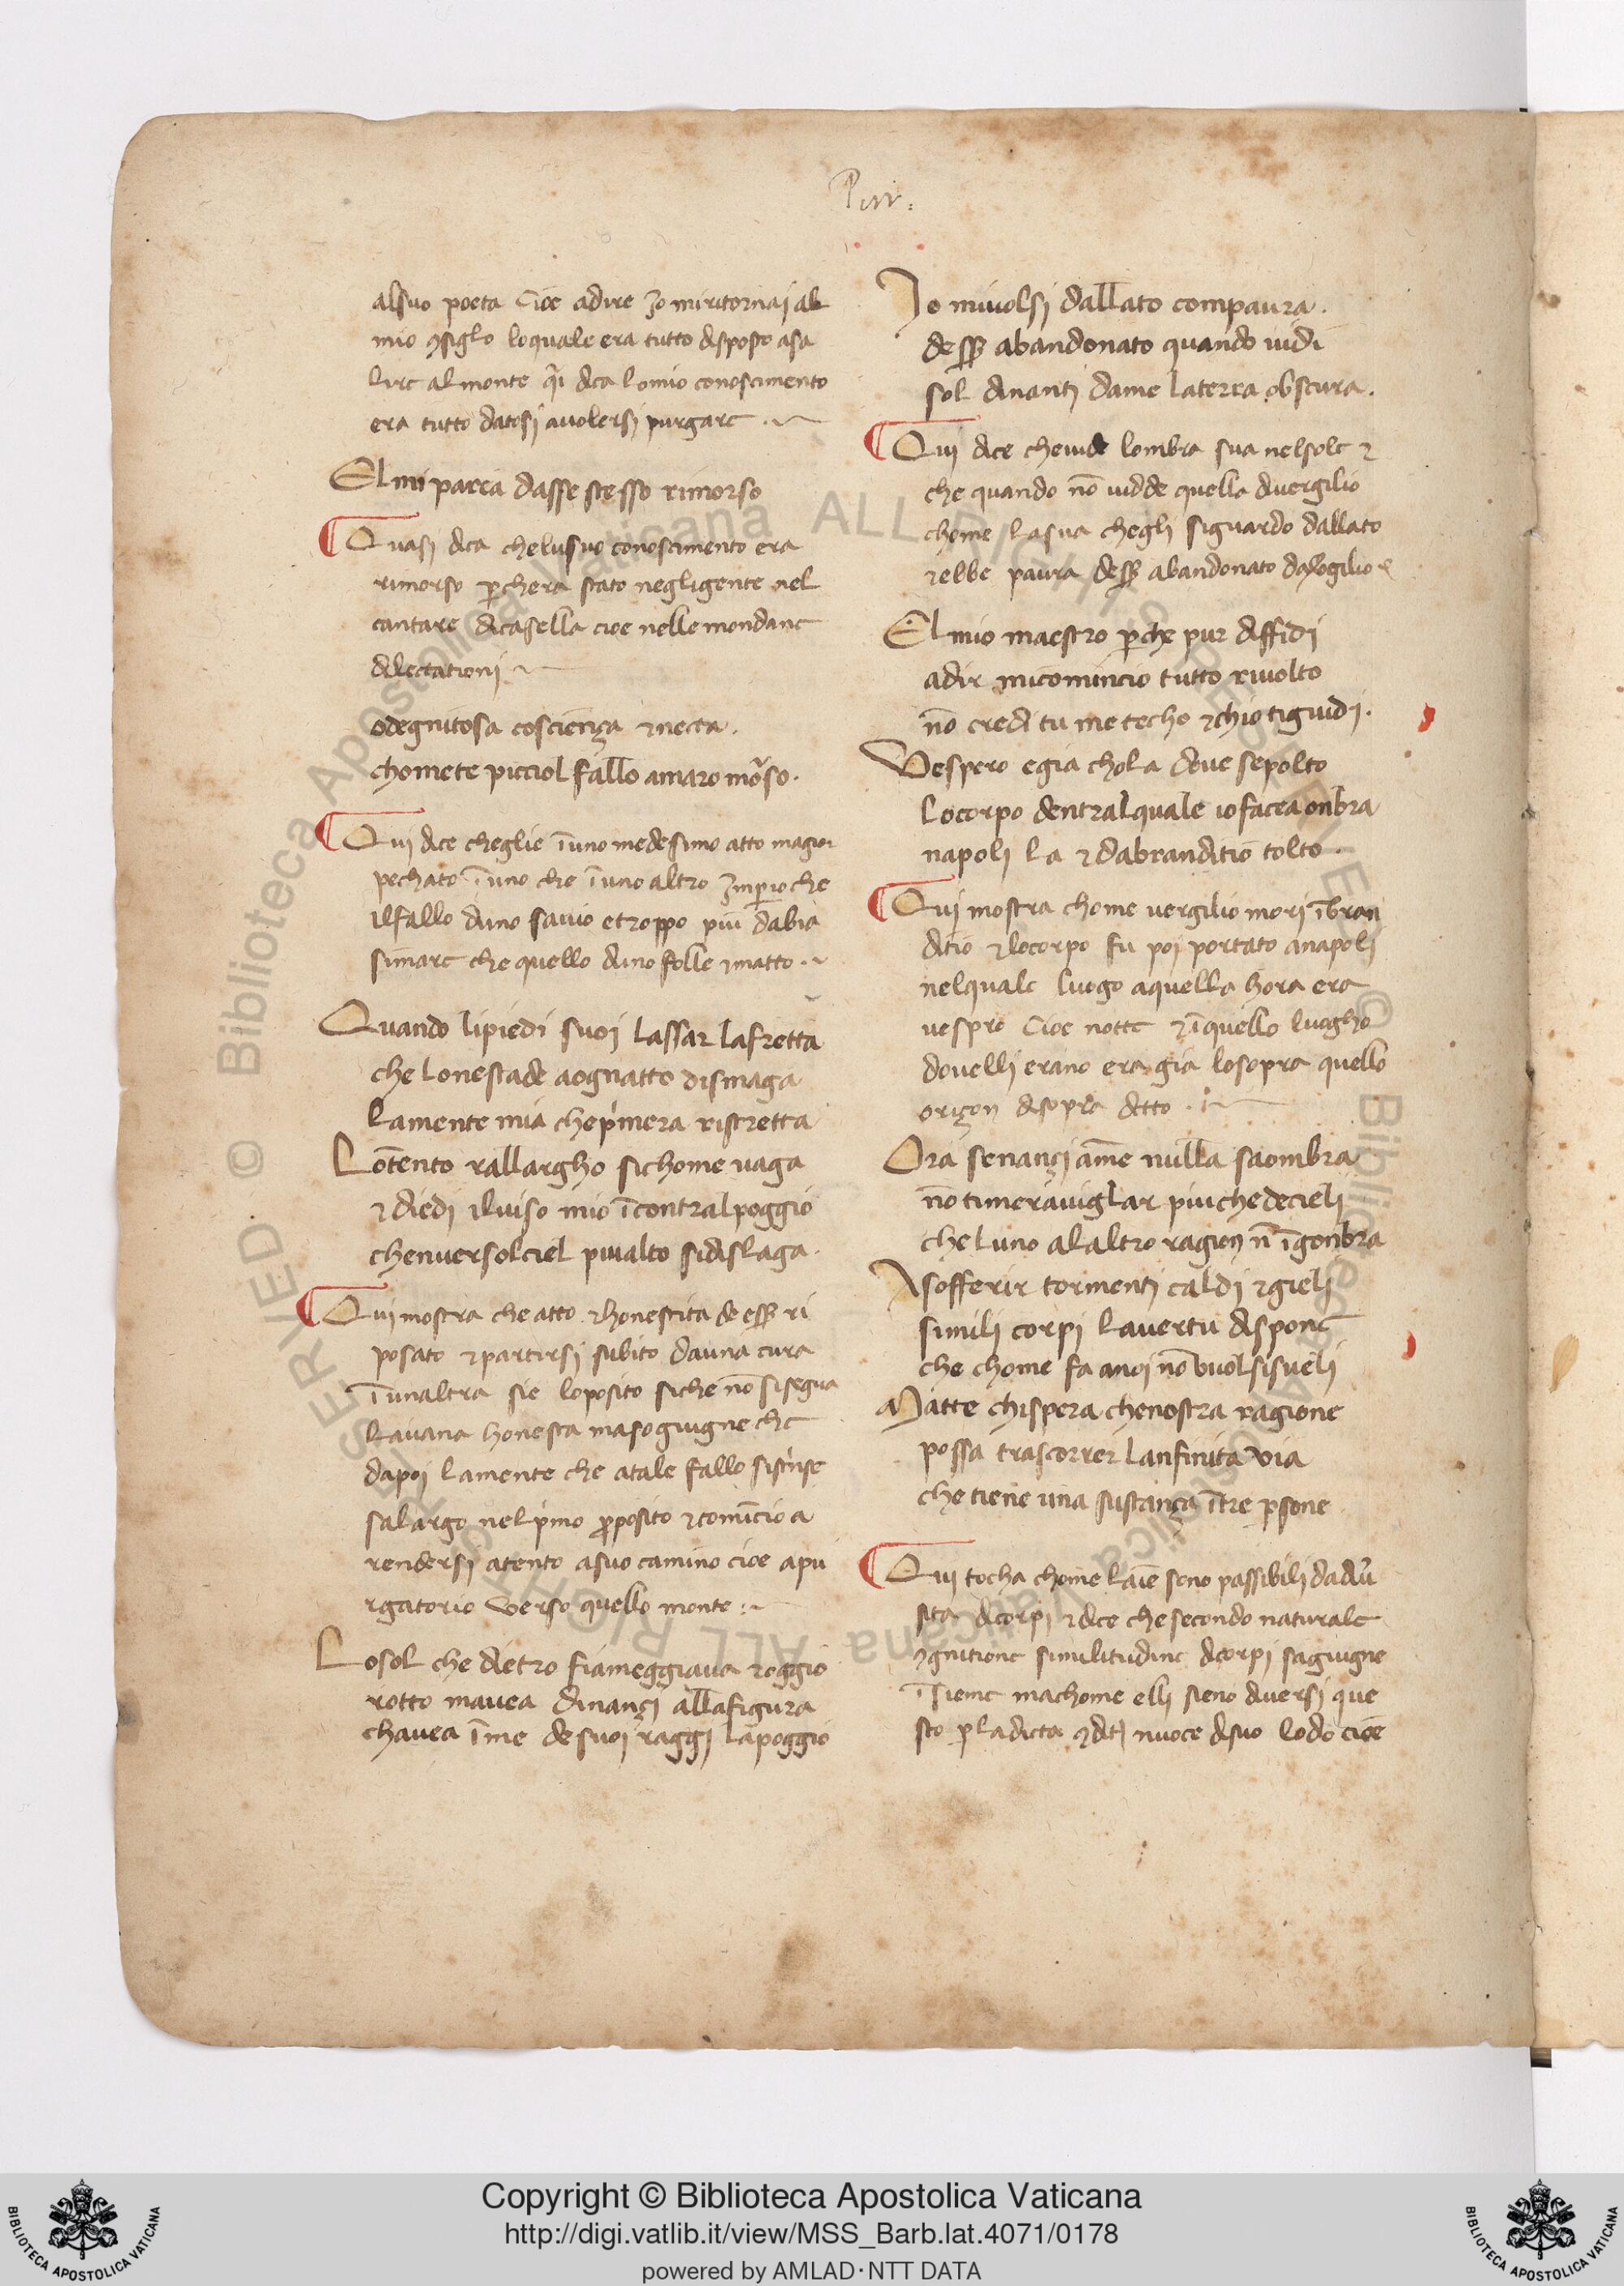 Pur.
alsuo poeta Cioe adire Io miritornai al
mio ꝯsiglo loquale era tutto disposto asa
lire al monte q̃i dica lomio conoscimento
era tutto datosi auolersi purgare
El mi parea dasse stesso rimorso
Quasi dica chelusuo conoscimento era
rimorso ꝑchera stato negligente nel
cantare dicasella cioe nelle mondane
dilectationi
odegnitosa cosciença ⁊necta.
chomete picciol fallo amaro morso.
Qui dice cheglie ĩuno medesimo atto magior
pechato ĩuno che ĩuno altro Impio che
ilfallo duno sauio etroppo piu dabia
simare che quello duno folle ⁊matto
Quando lipiedi suoi lassar lafretta
che lonestade aognatto dismaga
lamente mia chep̃mera ristretta
Lo ĩtento rallargho sichome uaga
⁊diedi iluiso mio ĩcontralpoggio
chenuersolciel piualto sidislaga.
Qui mostra che atto ⁊honestita de eſſ̃ ri
posato ⁊partirsi subito dauna cura
ĩunaltra sie loposito siche nõ sisegua
lauana honesta masogiugne che
dapoi lamente che atale fallo sistrĩse
salargo nelp̃mo ꝓposito ⁊comĩcio a
rendersi atento asuo camino cioe apu
rgatorio verso quello monte
Losol che dietro fiameggiaua roggio
rotto mauea dinançi allafigura
chauea ĩme desuoi raggi lapoggio
Io miuolsi dallato compaura.
deſſ̃ abandonato quando uidi
sol dinanti dame laterra obscura.
Qui dice cheuide lombra sua nelsole ⁊
che quando nõ uidde quella diuergilio
chome lasua chegli siguardo dallato
⁊ebbe paura deſſ̃ abandonato dauergilio
El mio maestro ꝑche pur diffidi
adir micomincio tutto riuolto
nõ credi tu me techo ⁊chio tiguidi.
Vespero egia chola doue sepolto
locorpo dentralquale io facea onbra
napoli la ⁊dabranditio tolto.
Qui mostra chome uergilio mori ĩbran
ditio ⁊locorpo fu poi portato anapoli
nelquale luogo aquella hora era
uespro Cioe notte ⁊ĩquello luogho
douelli erano era gia losopra quello
oriçon disopra detto.
Ora senançi ame nulla saombra
nõ timerauiglar piuchedecieli
che luno alaltro ragion nõ ĩgonbra
Asofferir tormenti caldi ⁊gieli
simili corpi lauertu dispone
che chome fa anoi nõ vuolsisueli
Matte chispera chenostra ragione
possa trascorrer lanfinita via
che tiene una sustança ĩtre ꝑsone
Qui tocha chome laĩe sono passibili dadiũ
sita dicorpi ⁊dice che secondo naturale
ꝯgnitione similitudine dicorpi sagiugne
ĩsieme machome elli sieno diuersi que
sto ꝑ ladicta ꝯditj nuoce disuo lodo cioe
Copyright © Biblioteca Apostolica Vaticana
http://digi.vatlib.it/view/MSS_Barb.lat.4071/0178
powered by AMLAD·NTT DATA